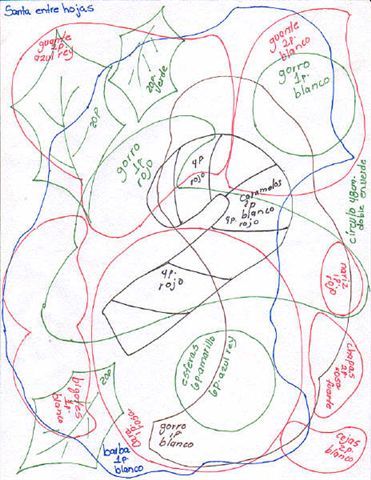 Santa entre hojas
guante
2p.
azul rey
20p.
verde
guante
2p.
blanco
gorro
1p.
blanco
20p
gorro
1p.
rojo
4p.
rojo
caramelos
2p.
blanco
4p. rojo
circulo 48cm.
doble en verde
4p.
rojo
nariz
1p.
rojo
esferas
6p. amarillo
6p. azul rey
chapas
2p.
rosa
fuerte
bigotes
1p.
blanco
20p
cara 1p.
rosa
gorro
1p.
blanco
cejas
2p.
blanco
barba
1p.
blanco